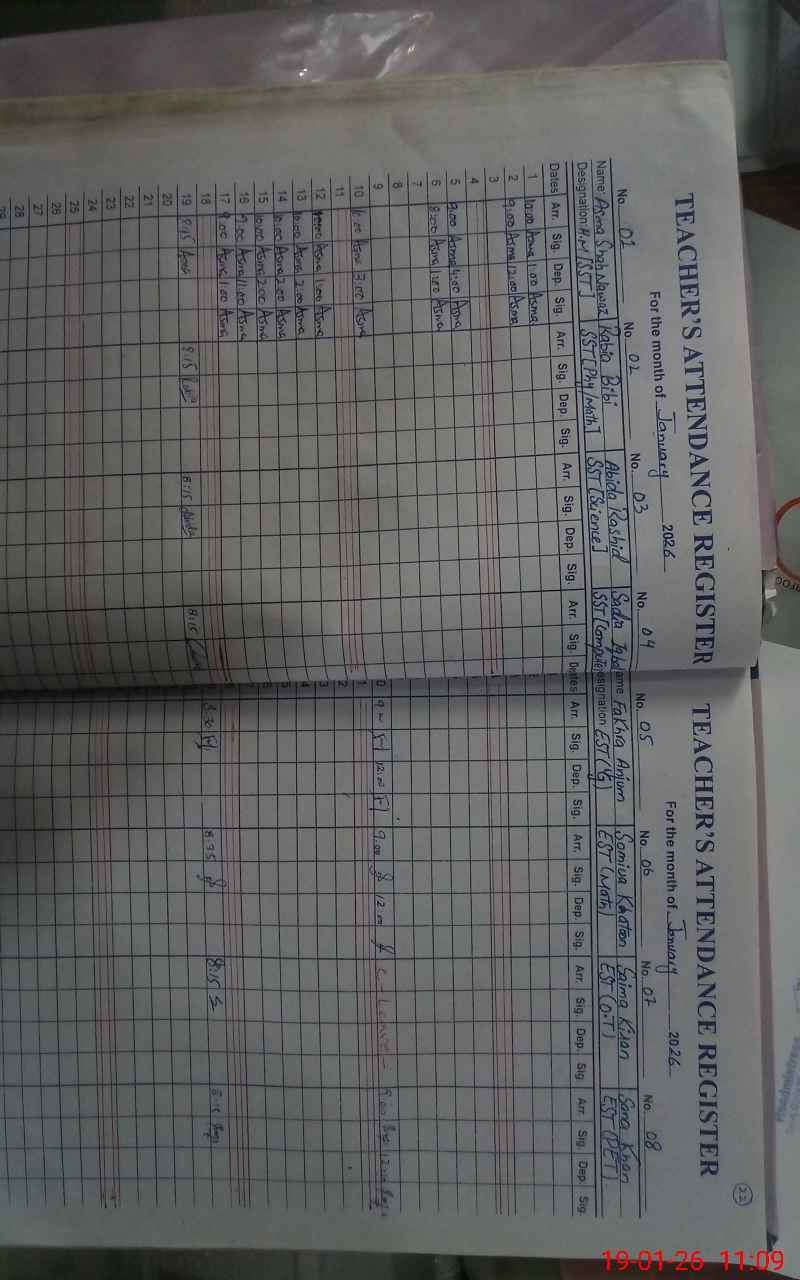 TEACHER'S ATTENDANCE REGISTER
For the month of January 2026
No. 01 No. 02 No. 03 No. 04
Name: Asma Shah Nawaz Rabia Bibi Abida Rashid Sadia Iqbal
Designation: H.M [SST] SST [Phy/Math] SST [Science] SST [Computer]
Dates Arr. Sig. Dep. Sig. Arr. Sig. Dep. Sig. Arr. Sig. Dep. Sig. Arr. Sig.
1 10:00 Asma 1:00 Asma
2 9:00 Asma 12:00 Asma
3
4
5 9:00 Asma 4:00 Asma
6 8:00 Asma 1:00 Asma
7
8
9
10 10:00 Asma 3:00 Asma
11
12 Asma 1:00 Asma
13 10:00 Asma 2:00 Asma
14 10:00 Asma 2:00 Asma
15 10:00 Asma 2:00 Asma
16 9:00 Asma 11:00 Asma
17 9:00 Asma 1:00 Asma
18
19 8:15 Asma 8:15 Rabia 8:15 Abida 8:15
20
21
22
23
24
25
26
27
28
29
TEACHER'S ATTENDANCE REGISTER
22
For the month of January 2026
No. 05 No. 06 No. 07 No. 08
Fakhra Anjum Samiya Khatoon Saima Kiran Sana Khan
Designation EST (Math) EST (D.T) EST (PET)
Dates Arr. Sig. Dep. Sig. Arr. Sig. Dep. Sig. Arr. Sig. Dep. Sig. Arr. Sig. Dep. Sig.
12:00 9:00 12:00 C-Leave 9:00 12:00
8:30 8:35 8:15 8:15
19-01-26 11:09